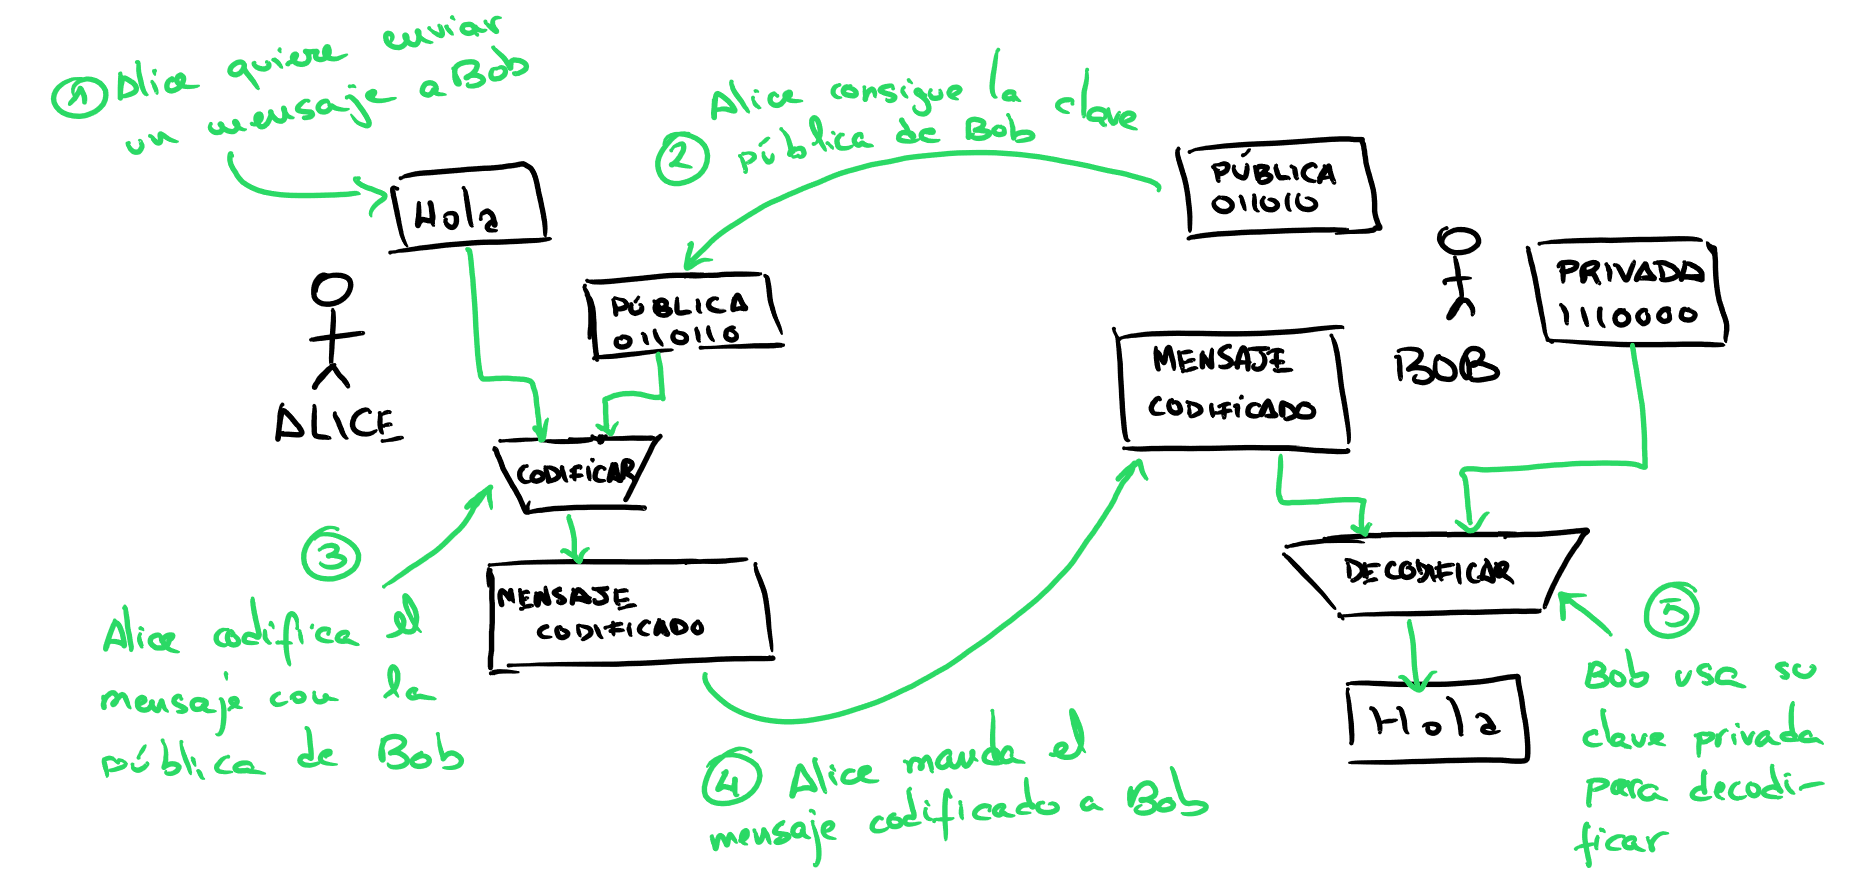 ① Alice quiere enviar
un mensaje a Bob
Hola
ALICE
② Alice consigue la clave
pública de Bob
PÚBLICA
011010
PÚBLICA
0110110
CODIFICAR
MENSAJE
CODIFICADO
③
Alice codifica el
mensaje con la
pública de Bob
④ Alice manda el
mensaje codificado a Bob
MENSAJE
CODIFICADO
BOB
PRIVADA
1110000
DECODIFICAR
Hola
⑤
Bob usa su
clave privada
para decodi-
ficar